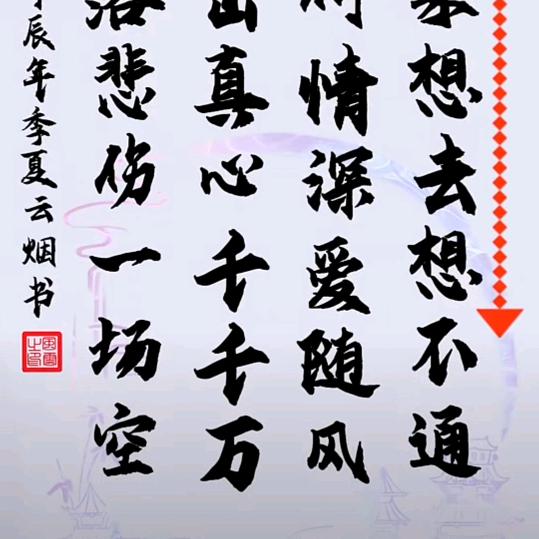 想去想不通
情深爱随风
出真心千千万
落悲伤一场空
辰年季夏云烟书